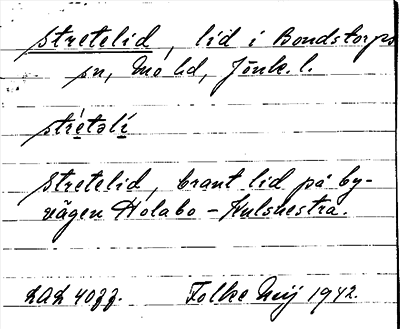 Stretelid, lid i Bondstorps
sn, Mo hd, Jönk. l.
strìetəlí
Stretelid, brant lid på by-
vägen Holabo - Hulshestra.
LAL 4077.
Folke Mij 1942.